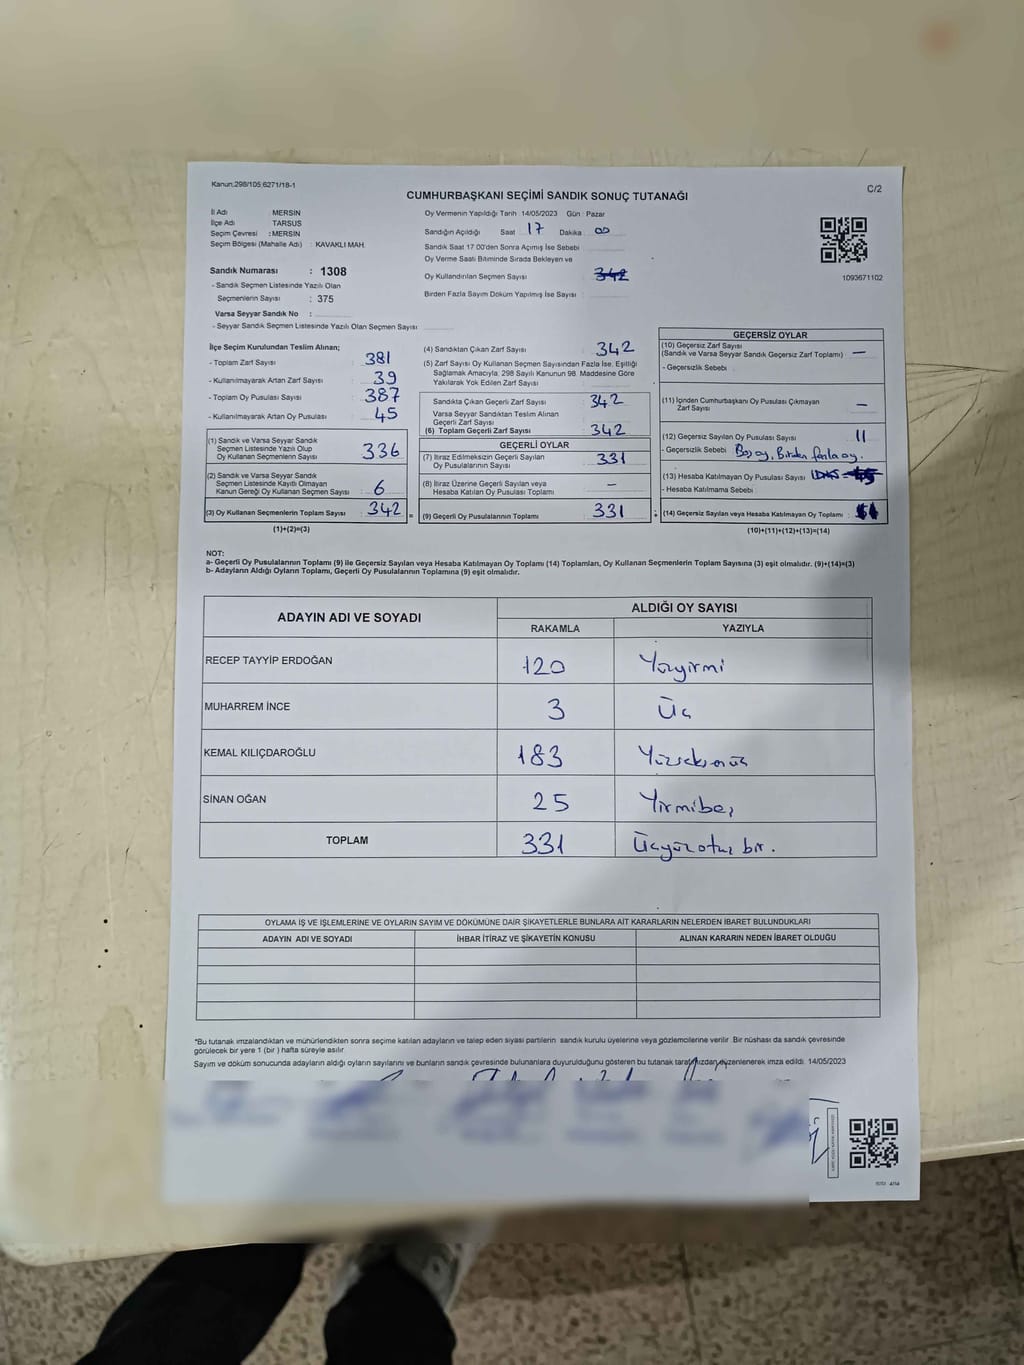 Kanun;298/105;6271/18-1
C/2
CUMHURBAŞKANI SEÇİMİ SANDIK SONUÇ TUTANAĞI
İl Adı : MERSİN
İlçe Adı : TARSUS
Seçim Çevresi : MERSİN
Seçim Bölgesi (Mahalle Adı) : KAVAKLI MAH.
Sandık Numarası : 1308
- Sandık Seçmen Listesinde Yazılı Olan
Seçmenlerin Sayısı : 375
Varsa Seyyar Sandık No :
- Seyyar Sandık Seçmen Listesinde Yazılı Olan Seçmen Sayısı
Oy Vermenin Yapıldığı Tarih :14/05/2023 Gün : Pazar
Sandığın Açıldığı Saat 17 Dakika 00
Sandık Saat 17:00'den Sonra Açımış İse Sebebi
Oy Verme Saati Bitiminde Sırada Bekleyen ve
Oy Kullandırılan Seçmen Sayısı 342
Birden Fazla Sayım Döküm Yapılmış İse Sayısı
1093671102
İlçe Seçim Kurulundan Teslim Alınan;
- Toplam Zarf Sayısı 381
- Kullanılmayarak Artan Zarf Sayısı 39
- Toplam Oy Pusulası Sayısı 387
- Kullanılmayarak Artan Oy Pusulası 45
(1) Sandık ve Varsa Seyyar Sandık
Seçmen Listesinde Yazılı Olup
Oy Kullanan Seçmenlerin Sayısı 336
(2) Sandık ve Varsa Seyyar Sandık
Seçmen Listesinde Kayıtlı Olmayan
Kanun Gereği Oy Kullanan Seçmen Sayısı 6
(3) Oy Kullanan Seçmenlerin Toplam Sayısı : 342 =
(1)+(2)=(3)
(4) Sandıktan Çıkan Zarf Sayısı 342
(5) Zarf Sayısı Oy Kullanan Seçmen Sayısından Fazla İse, Eşitliği
Sağlamak Amacıyla, 298 Sayılı Kanunun 98. Maddesine Göre
Yakılarak Yok Edilen Zarf Sayısı
Sandıkta Çıkan Geçerli Zarf Sayısı : 342
Varsa Seyyar Sandıktan Teslim Alınan
Geçerli Zarf Sayısı
(6) Toplam Geçerli Zarf Sayısı 342
GEÇERLİ OYLAR
(7) İtiraz Edilmeksizin Geçerli Sayılan
Oy Pusulalarının Sayısı 331
(8) İtiraz Üzerine Geçerli Sayılan veya
Hesaba Katılan Oy Pusulası Toplamı –
(9) Geçerli Oy Pusulalarının Toplamı 331
GEÇERSİZ OYLAR
(10) Geçersiz Zarf Sayısı
(Sandık ve Varsa Seyyar Sandık Geçersiz Zarf Toplamı) –
- Geçersizlik Sebebi
(11) İçinden Cumhurbaşkanı Oy Pusulası Çıkmayan
Zarf Sayısı –
(12) Geçersiz Sayılan Oy Pusulası Sayısı 11
-Geçersizlik Sebebi Boş oy, Birden fazla oy.
(13) Hesaba Katılmayan Oy Pusulası Sayısı
- Hesaba Katılmama Sebebi
(14) Geçersiz Sayılan veya Hesaba Katılmayan Oy Toplamı :
(10)+(11)+(12)+(13)=(14)
NOT:
a- Geçerli Oy Pusulalarının Toplamı (9) ile Geçersiz Sayılan veya Hesaba Katılmayan Oy Toplamı (14) Toplamları, Oy Kullanan Seçmenlerin Toplam Sayısına (3) eşit olmalıdır. (9)+(14)=(3)
b- Adayların Aldığı Oyların Toplamı, Geçerli Oy Pusulalarının Toplamına (9) eşit olmalıdır.
ADAYIN ADI VE SOYADI ALDIĞI OY SAYISI
RAKAMLA YAZIYLA
RECEP TAYYİP ERDOĞAN 120 Yüzyirmi
MUHARREM İNCE 3 Üç
KEMAL KILIÇDAROĞLU 183 Yüzseksenüç
SİNAN OĞAN 25 Yirmibeş
TOPLAM 331 Üçyüzotuz bir.
OYLAMA İŞ VE İŞLEMLERİNE VE OYLARIN SAYIM VE DÖKÜMÜNE DAİR ŞİKAYETLERLE BUNLARA AİT KARARLARIN NELERDEN İBARET BULUNDUKLARI
ADAYIN ADI VE SOYADI İHBAR İTİRAZ VE ŞİKAYETİN KONUSU ALINAN KARARIN NEDEN İBARET OLDUĞU
*Bu tutanak imzalandıktan ve mühürlendikten sonra seçime katılan adayların ve talep eden siyasi partilerin sandık kurulu üyelerine veya gözlemcilerine verilir .Bir nüshası da sandık çevresinde
görülecek bir yere 1 (bir ) hafta süreyle asılır
Sayım ve döküm sonucunda adayların aldığı oyların sayılarını ve bunların sandık çevresinde bulunanlara duyurulduğunu gösteren bu tutanak tarafımızdan düzenlenerek imza edildi. 14/05/2023